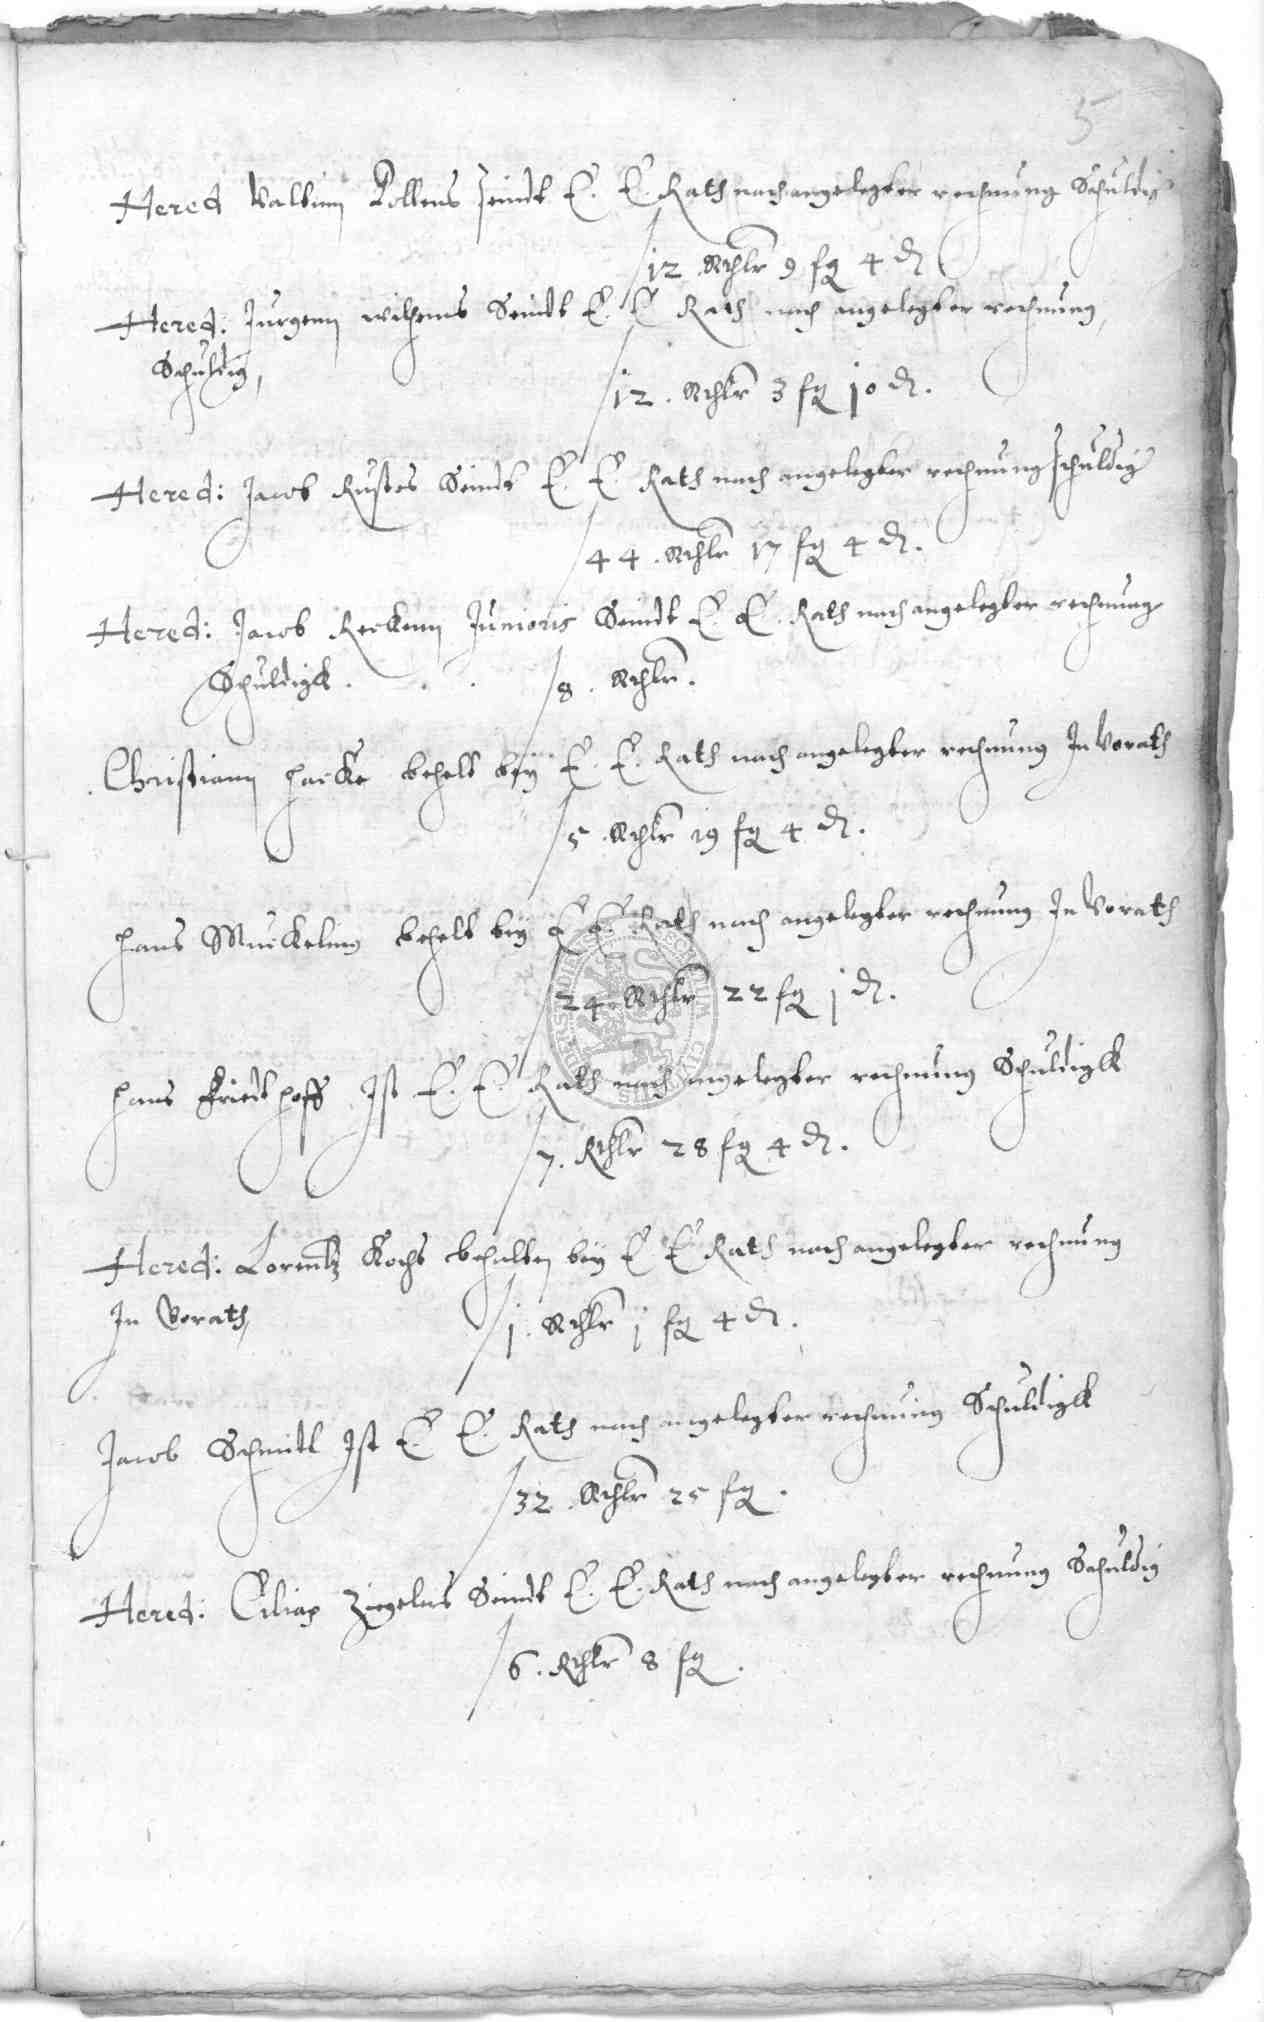 5
Hered Valtinn Pollens seindt E. E. Rath nach angelegter rechnung Schuldig
12 Rthlr 9 fg 4 d
Hered: Jurgenn wilhems Seindt E. E Rath nach angelegter rechnung,
Schuldig,
12. Rthlr 3 fg jo d.
Hered: Jacob Rustes Seindt E. E. Rath nach angelegter rechnung schuldig
44. Rthlr 17 fg 4 d.
Hered: Jacob Reckenn Junioris Seindt E. E. Rath nach angelegter rechnung
Schuldigk . . . 8. Rthlr.
Christiann Hacke behelt bey E. E. Rath nach angelegter rechnung In Vorath
5. Rthlr 19 fg 4 d.
Hans Muckeling behelt bey E E. Rath nach angelegter rechnung In Vorath
24. Rthlr 22 fg j d.
Hans Friedthoff Ist E. E. Rath nach angelegter rechnung Schuldigk
7. Rthlr 28 fg 4 d.
Hered: Lorentz Kochs behalten bey E E Rath nach angelegter rechnung
In Vorath,
j. Rthlr j fg 4 d.
Jacob Schmitt Ist E. E. Rath nach angelegter rechnung Schuldigk
32. Rthlr 25 fg.
Hered: Ciliax Ziegelers Seindt E. E. Rath nach angelegter rechnung Schuldig
6. Rthlr 8 fg.